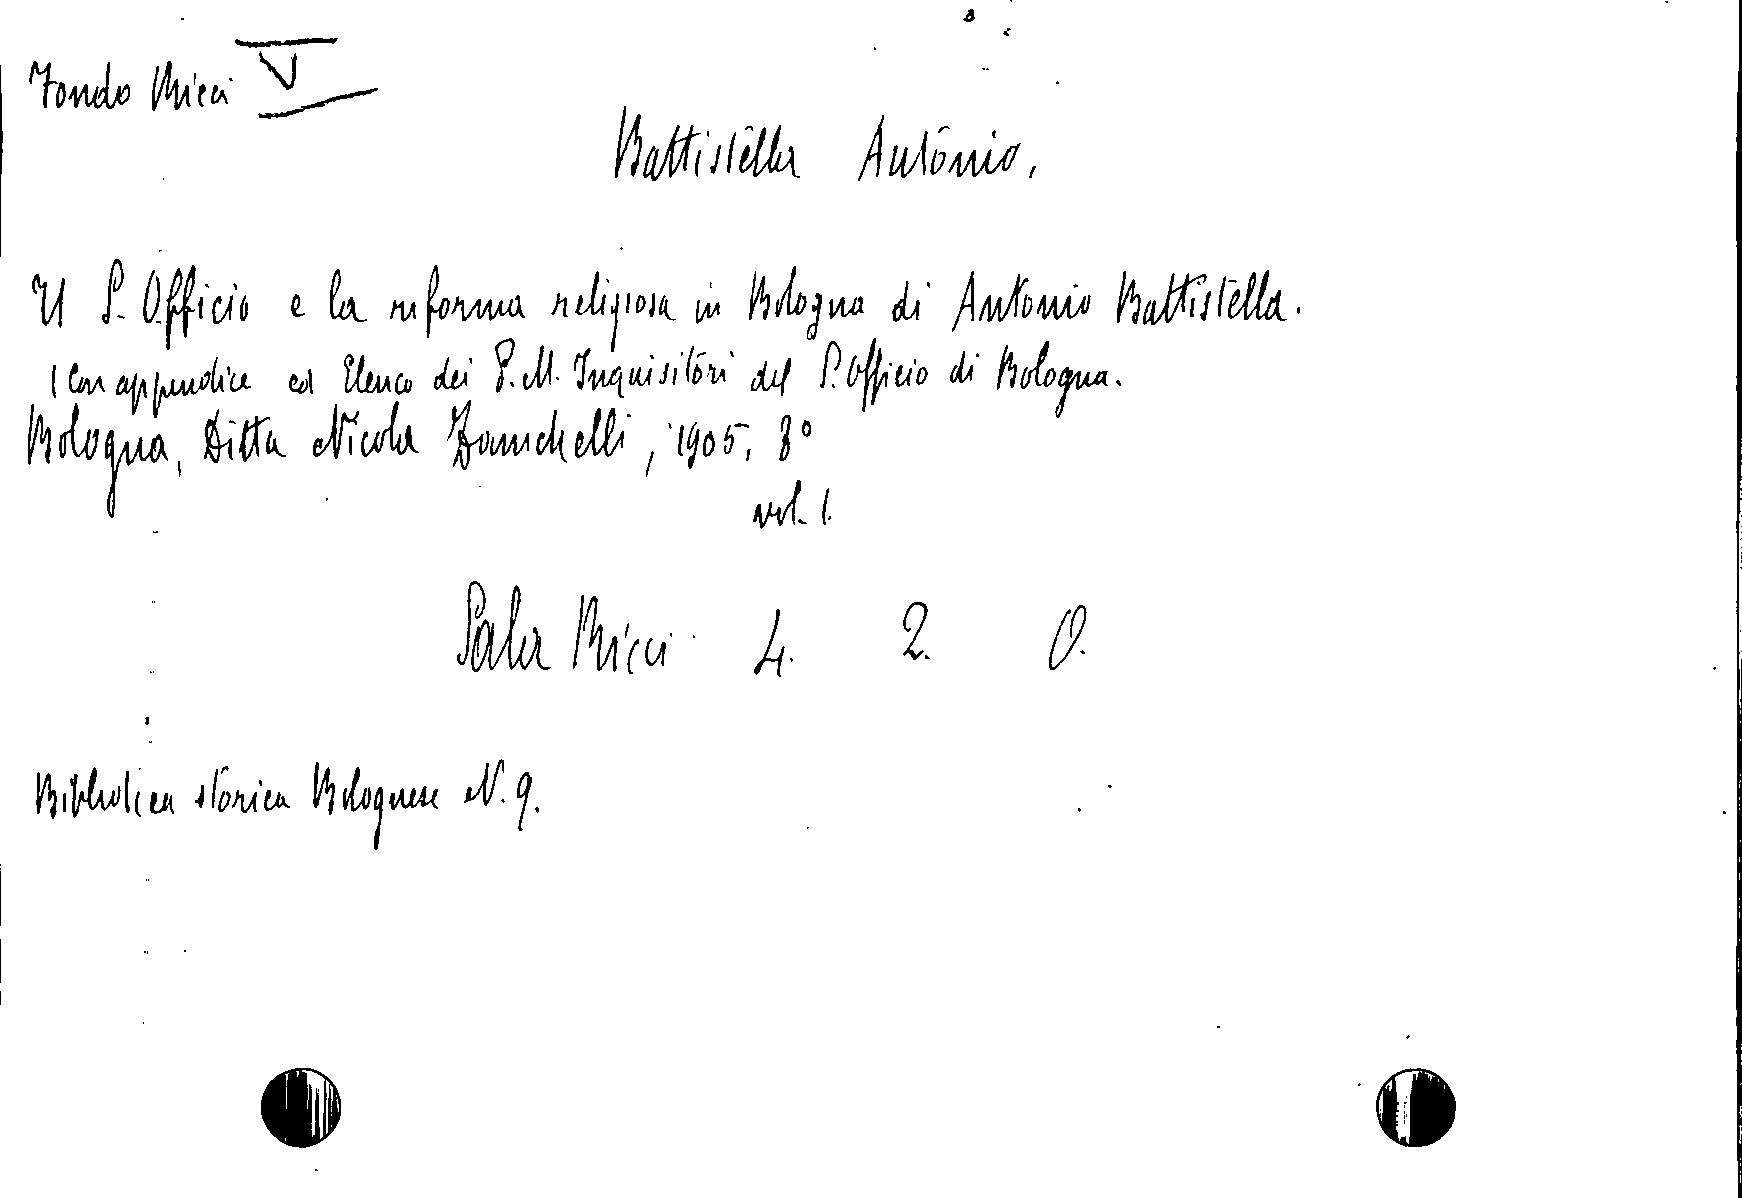 Fondo Ricci V
Battistella Antonio.
Il S. Officio e la riforma religiosa in Bologna di Antonio Battistella.
(Con appendice ed Elenco dei P. M. Inquisitori del S. Officio di Bologna.
Bologna, Ditta Nicola Zanichelli, 1905. 8°
vol. 1.
Sala Ricci 4. 2. O.
Biblioteca storica Bolognese N. 9.